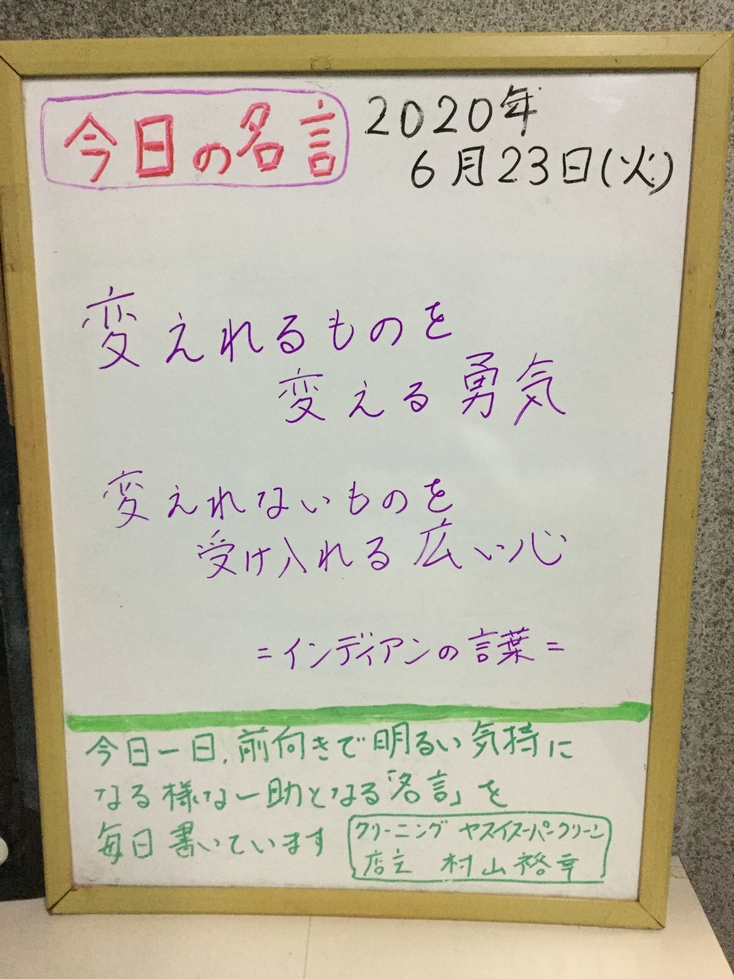 今日の名言
2020年
6月23日(火)
変えれるものを
変える勇気
変えれないものを
受け入れる広い心
=インディアンの言葉=
今日一日、前向きで明るい気持に
なる様な一助となる「名言」を
毎日書いています
クリーニング ヤスイスーパークリーン
店主 村山裕幸